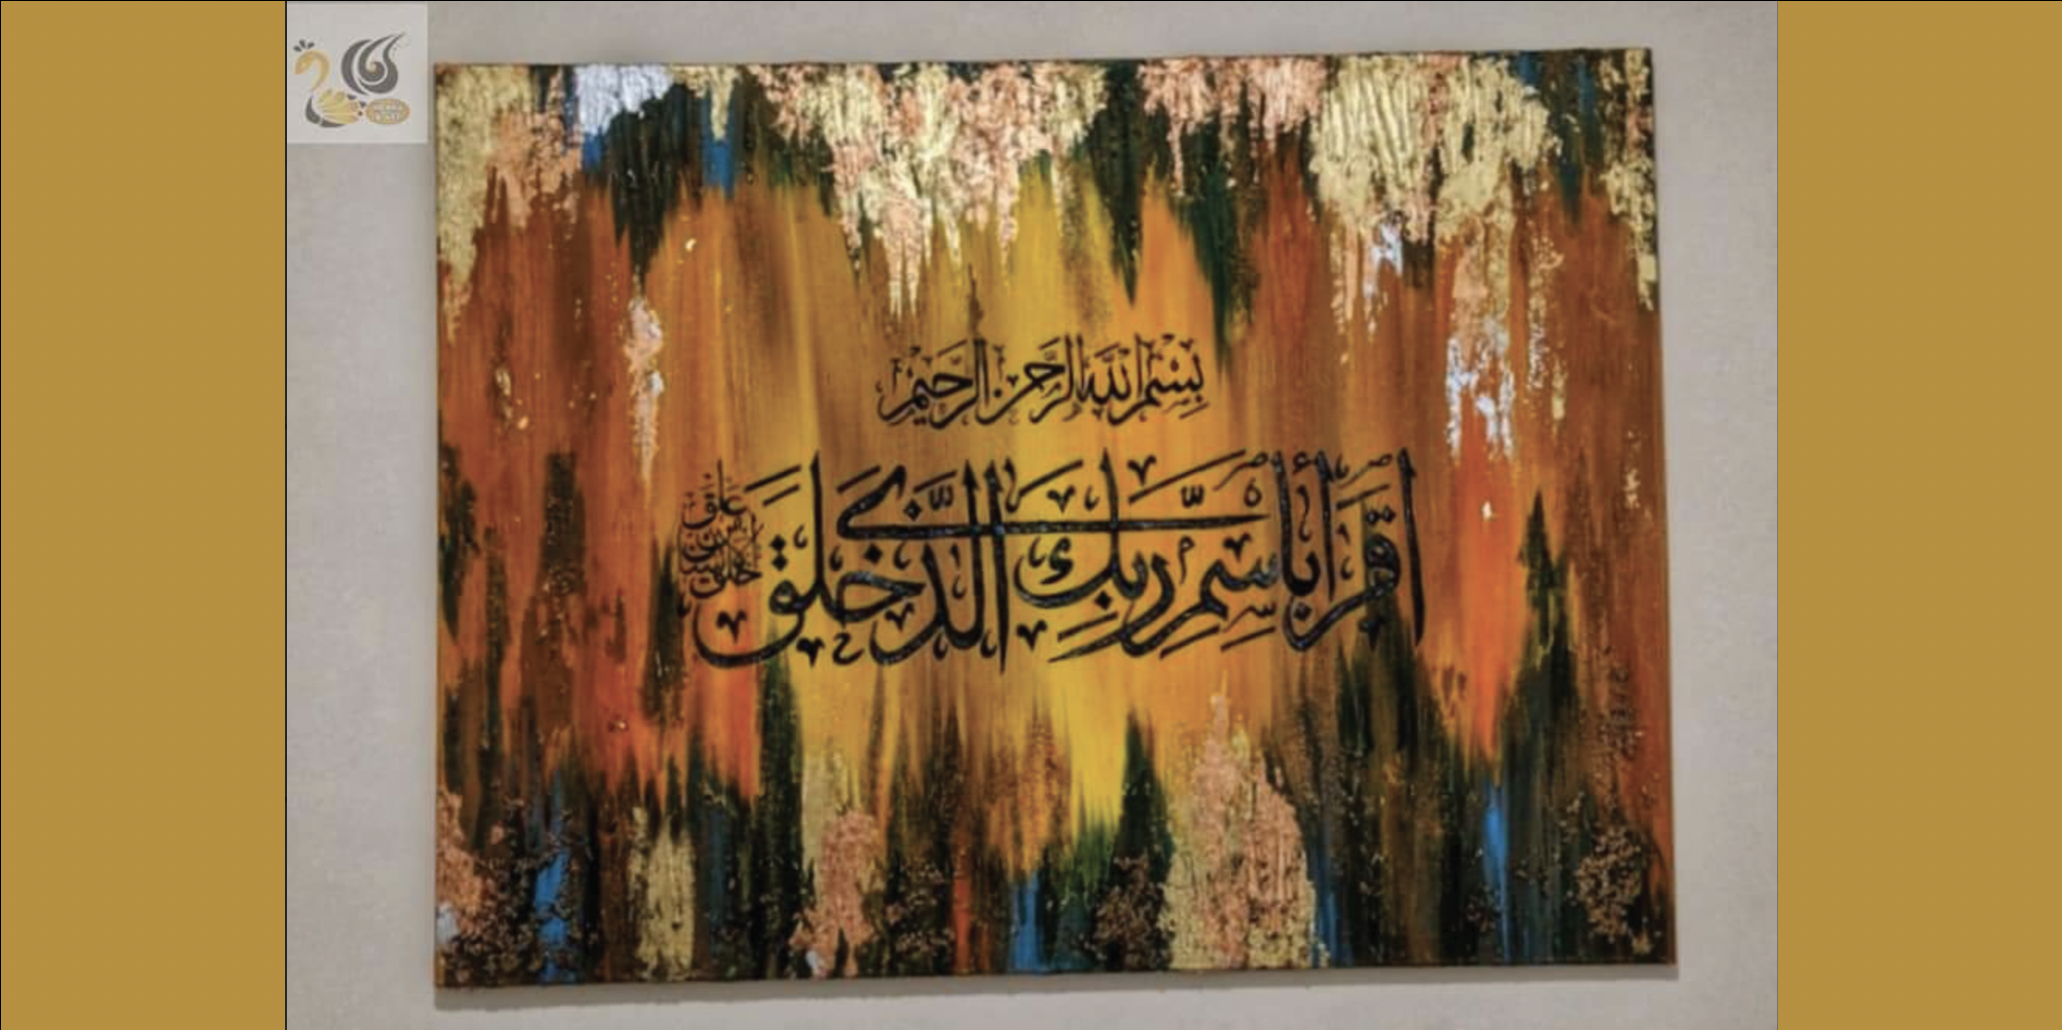 بِسْمِ اللَّهِ الرَّحْمَنِ الرَّحِيمِ
اقْرَأْ بِاسْمِ رَبِّكَ الَّذِي خَلَقَ
خلق الإنسان من علق